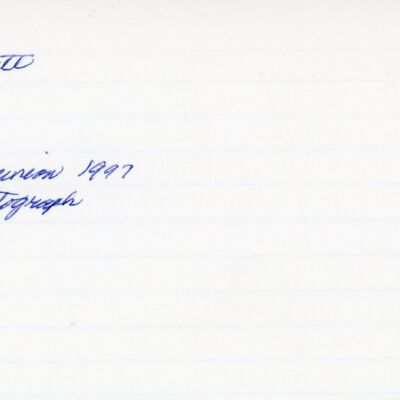 tt
union 1997
tograph